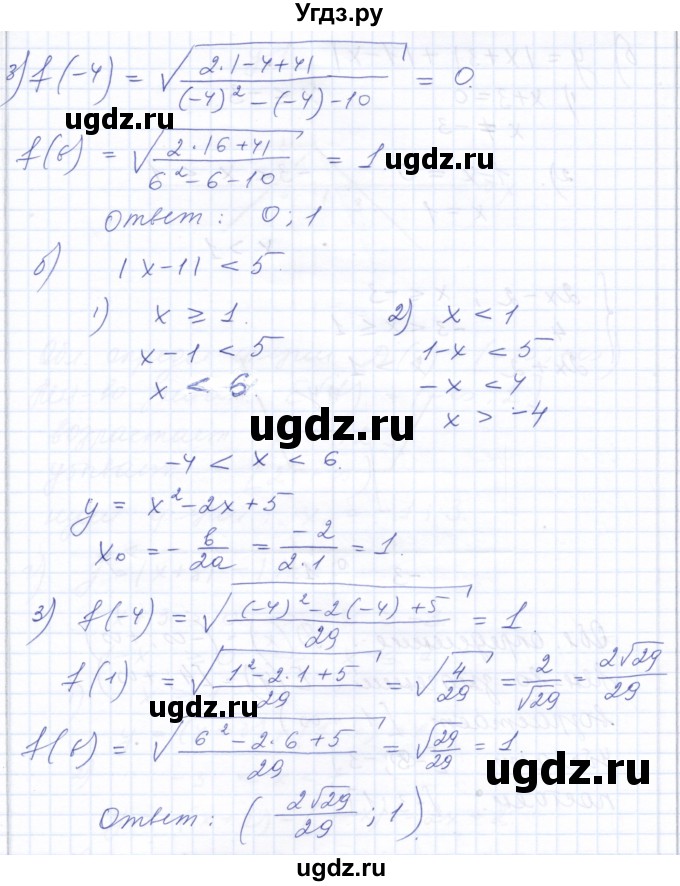 Угдз.ру
3) f(-4) = √(2·|-4+4| / ((-4)² - (-4) - 10)) = 0.
ugdz.ru
f(6) = √(2·|6+4| / (6² - 6 - 10)) = 1
ugdz.ru
Ответ: 0; 1
б) |x-1| < 5.
1) x ≥ 1. 2) x < 1
x - 1 < 5 1-x < 5
x < 6. -x < 4
ugdz.ru x > -4
-4 < x < 6.
y = x² - 2x + 5
x₀ = - в/2a = -2/(2·1) = 1.
3) f(-4) = √(((-4)² - 2(-4) + 5) / 29) = 1
f(1) = √((1² - 2·1 + 5) / 29) = √(4/29) = 2/√29 = 2√29/29
f(6) = √((6² - 2·6 + 5) / 29) = √(29/29) = 1.
ugdz.ru
Ответ: (2√29/29; 1).
ugdz.ru
ugdz.ru